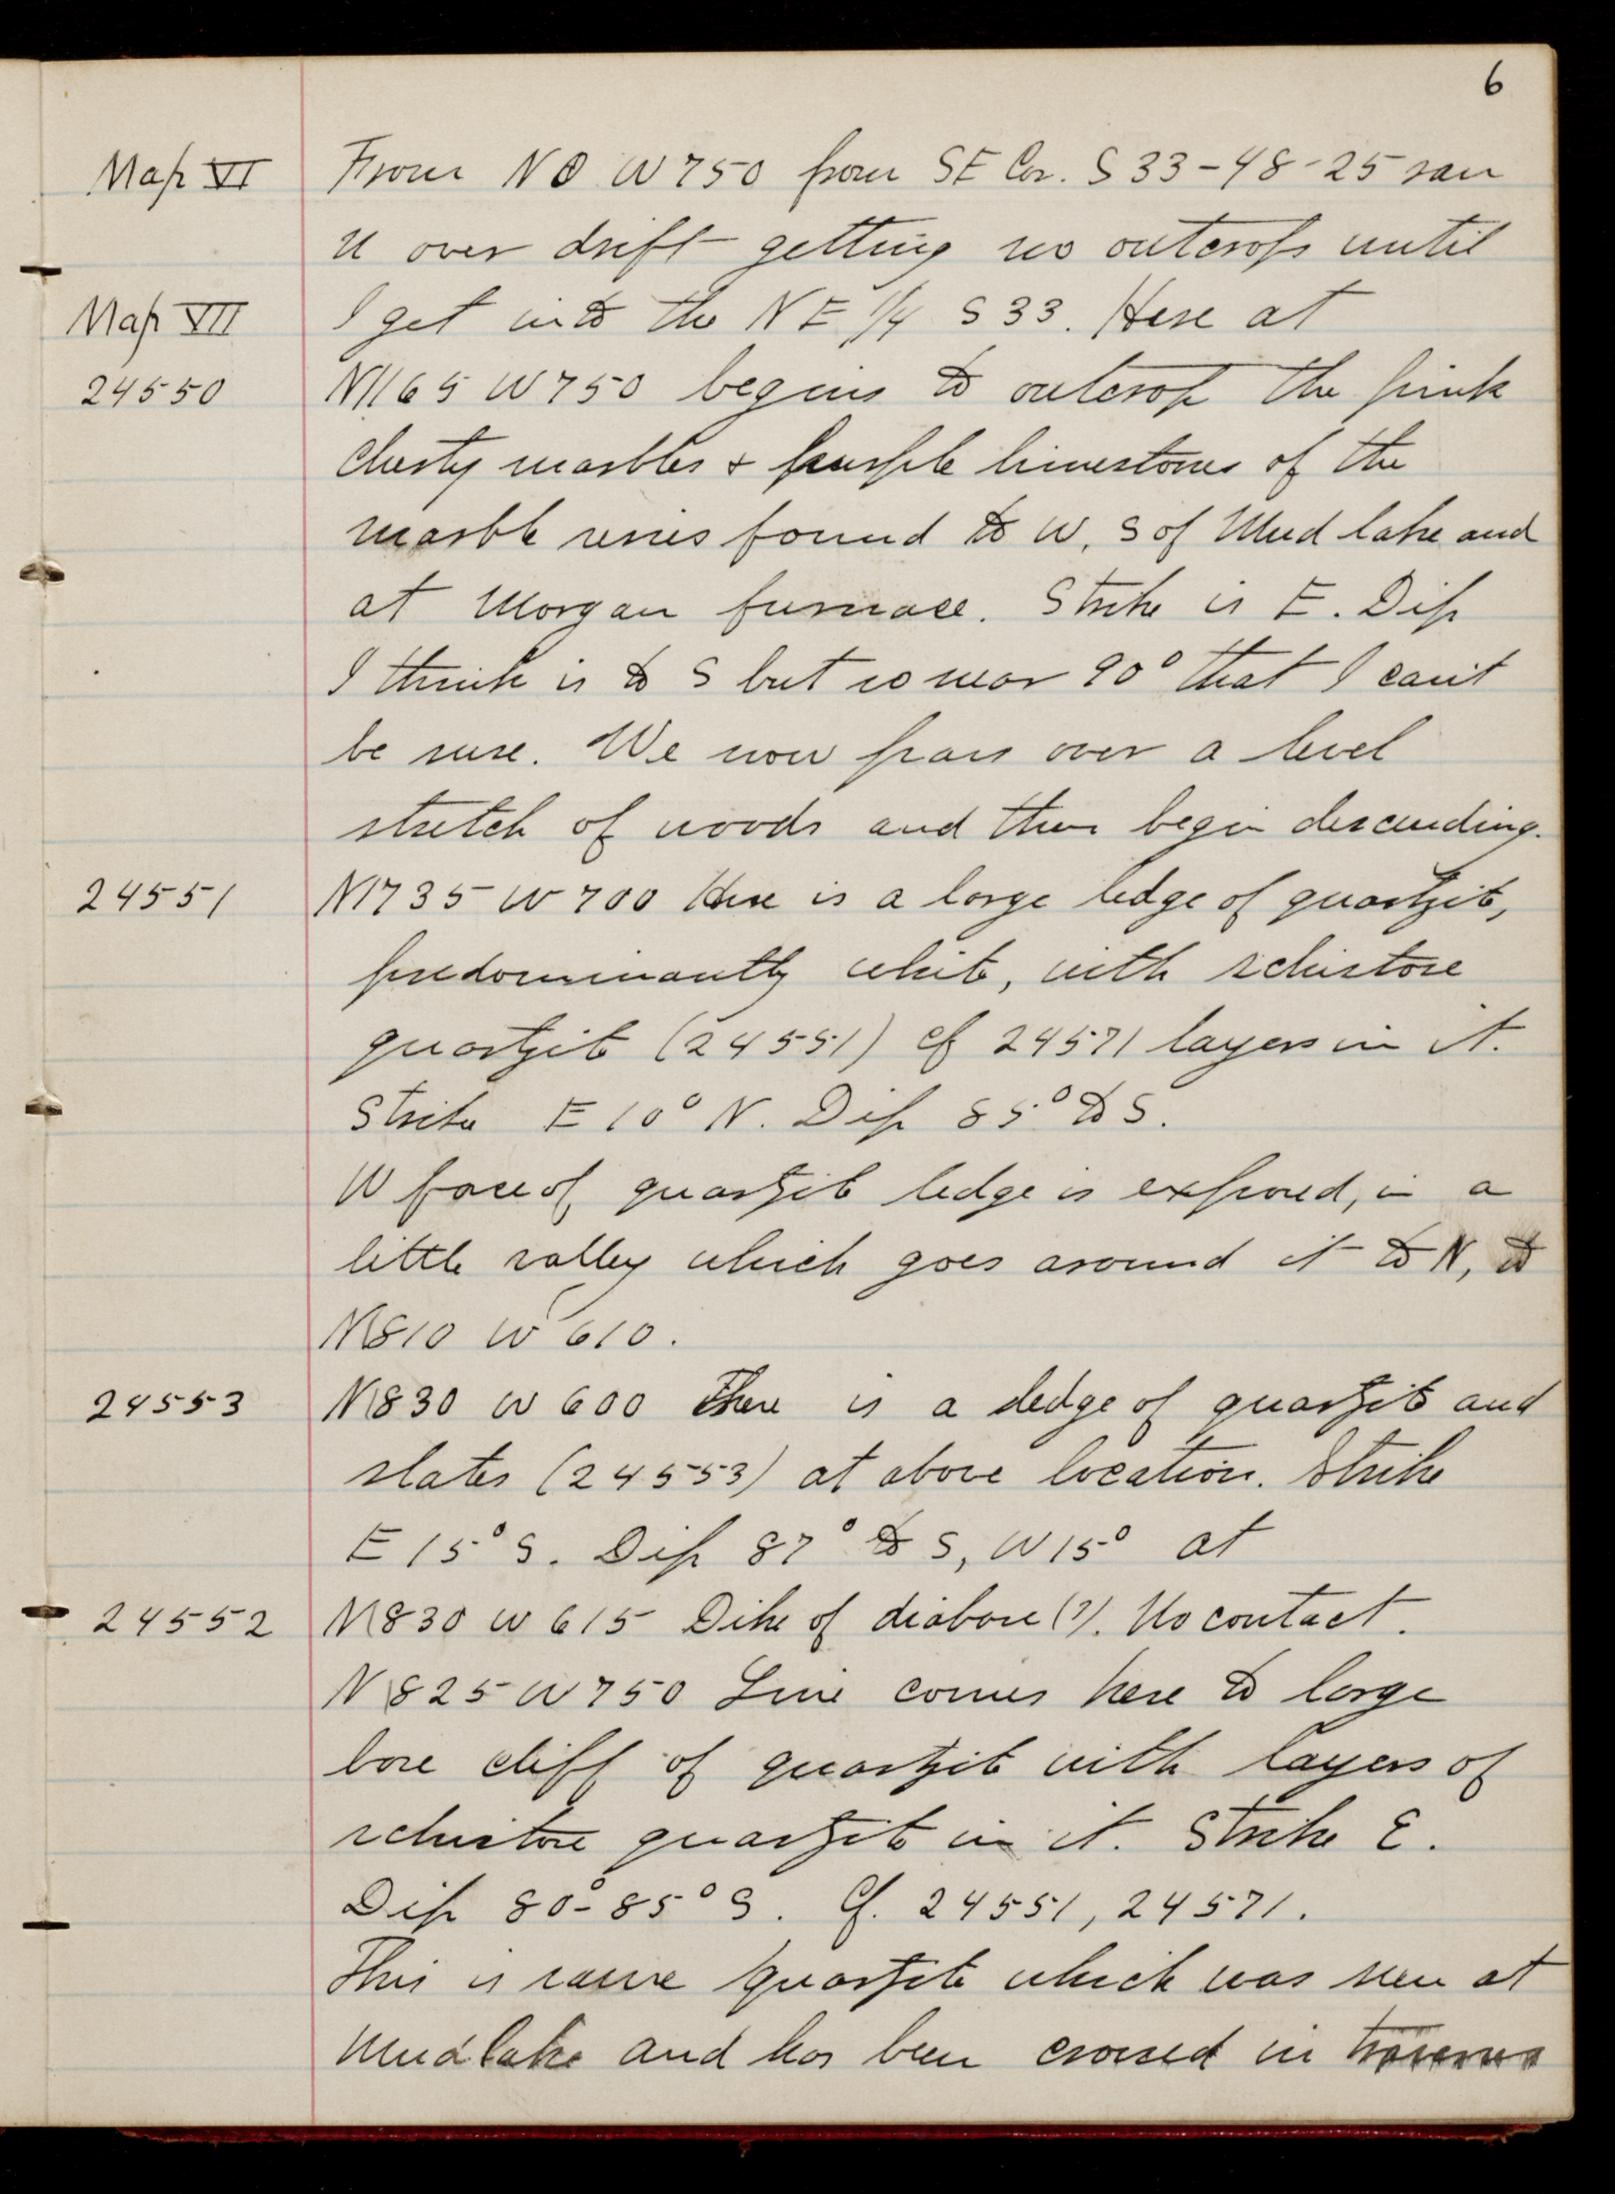 6
Map VI From N 0 W 750 from SE Cor. S 33-48-25 ran
N over drift getting no outcrops until
Map VII I get into the NE 1/4 S 33. Here at
24550 N1165 W750 begins to outcrop the pink
cherty marbles + purple limestones of the
marble series found to W, S of Mud lake and
at Morgan furnace. Strike is E. Dip
I think is to S but so near 90° that I can't
be sure. We now pass over a level
stretch of woods and then begin descending.
24551 N1735 W 700 Here is a large ledge of quartzite,
predominantly white, with schistose
quartzite (24551) cf 24571 layers in it.
Strike E 10° N. Dip 85° to S.
W face of quartzite ledge is exposed, in a
little valley which goes around it to N, to
N1810 W 610.
24553 N1830 W 600 There is a ledge of quartzite and
slates (24553) at above location. Strike
E 15° S. Dip 87° to S, W 15° at
24552 N1830 W 615 Dike of diabase (?). No contact.
N1825 W 750 Line comes here to large
bare cliff of quartzite with layers of
schistose quartzite in it. Strike E.
Dip 80°-85° S. Cf. 24551, 24571.
This is same quartzite which was seen at
Mud lake and has been crossed in